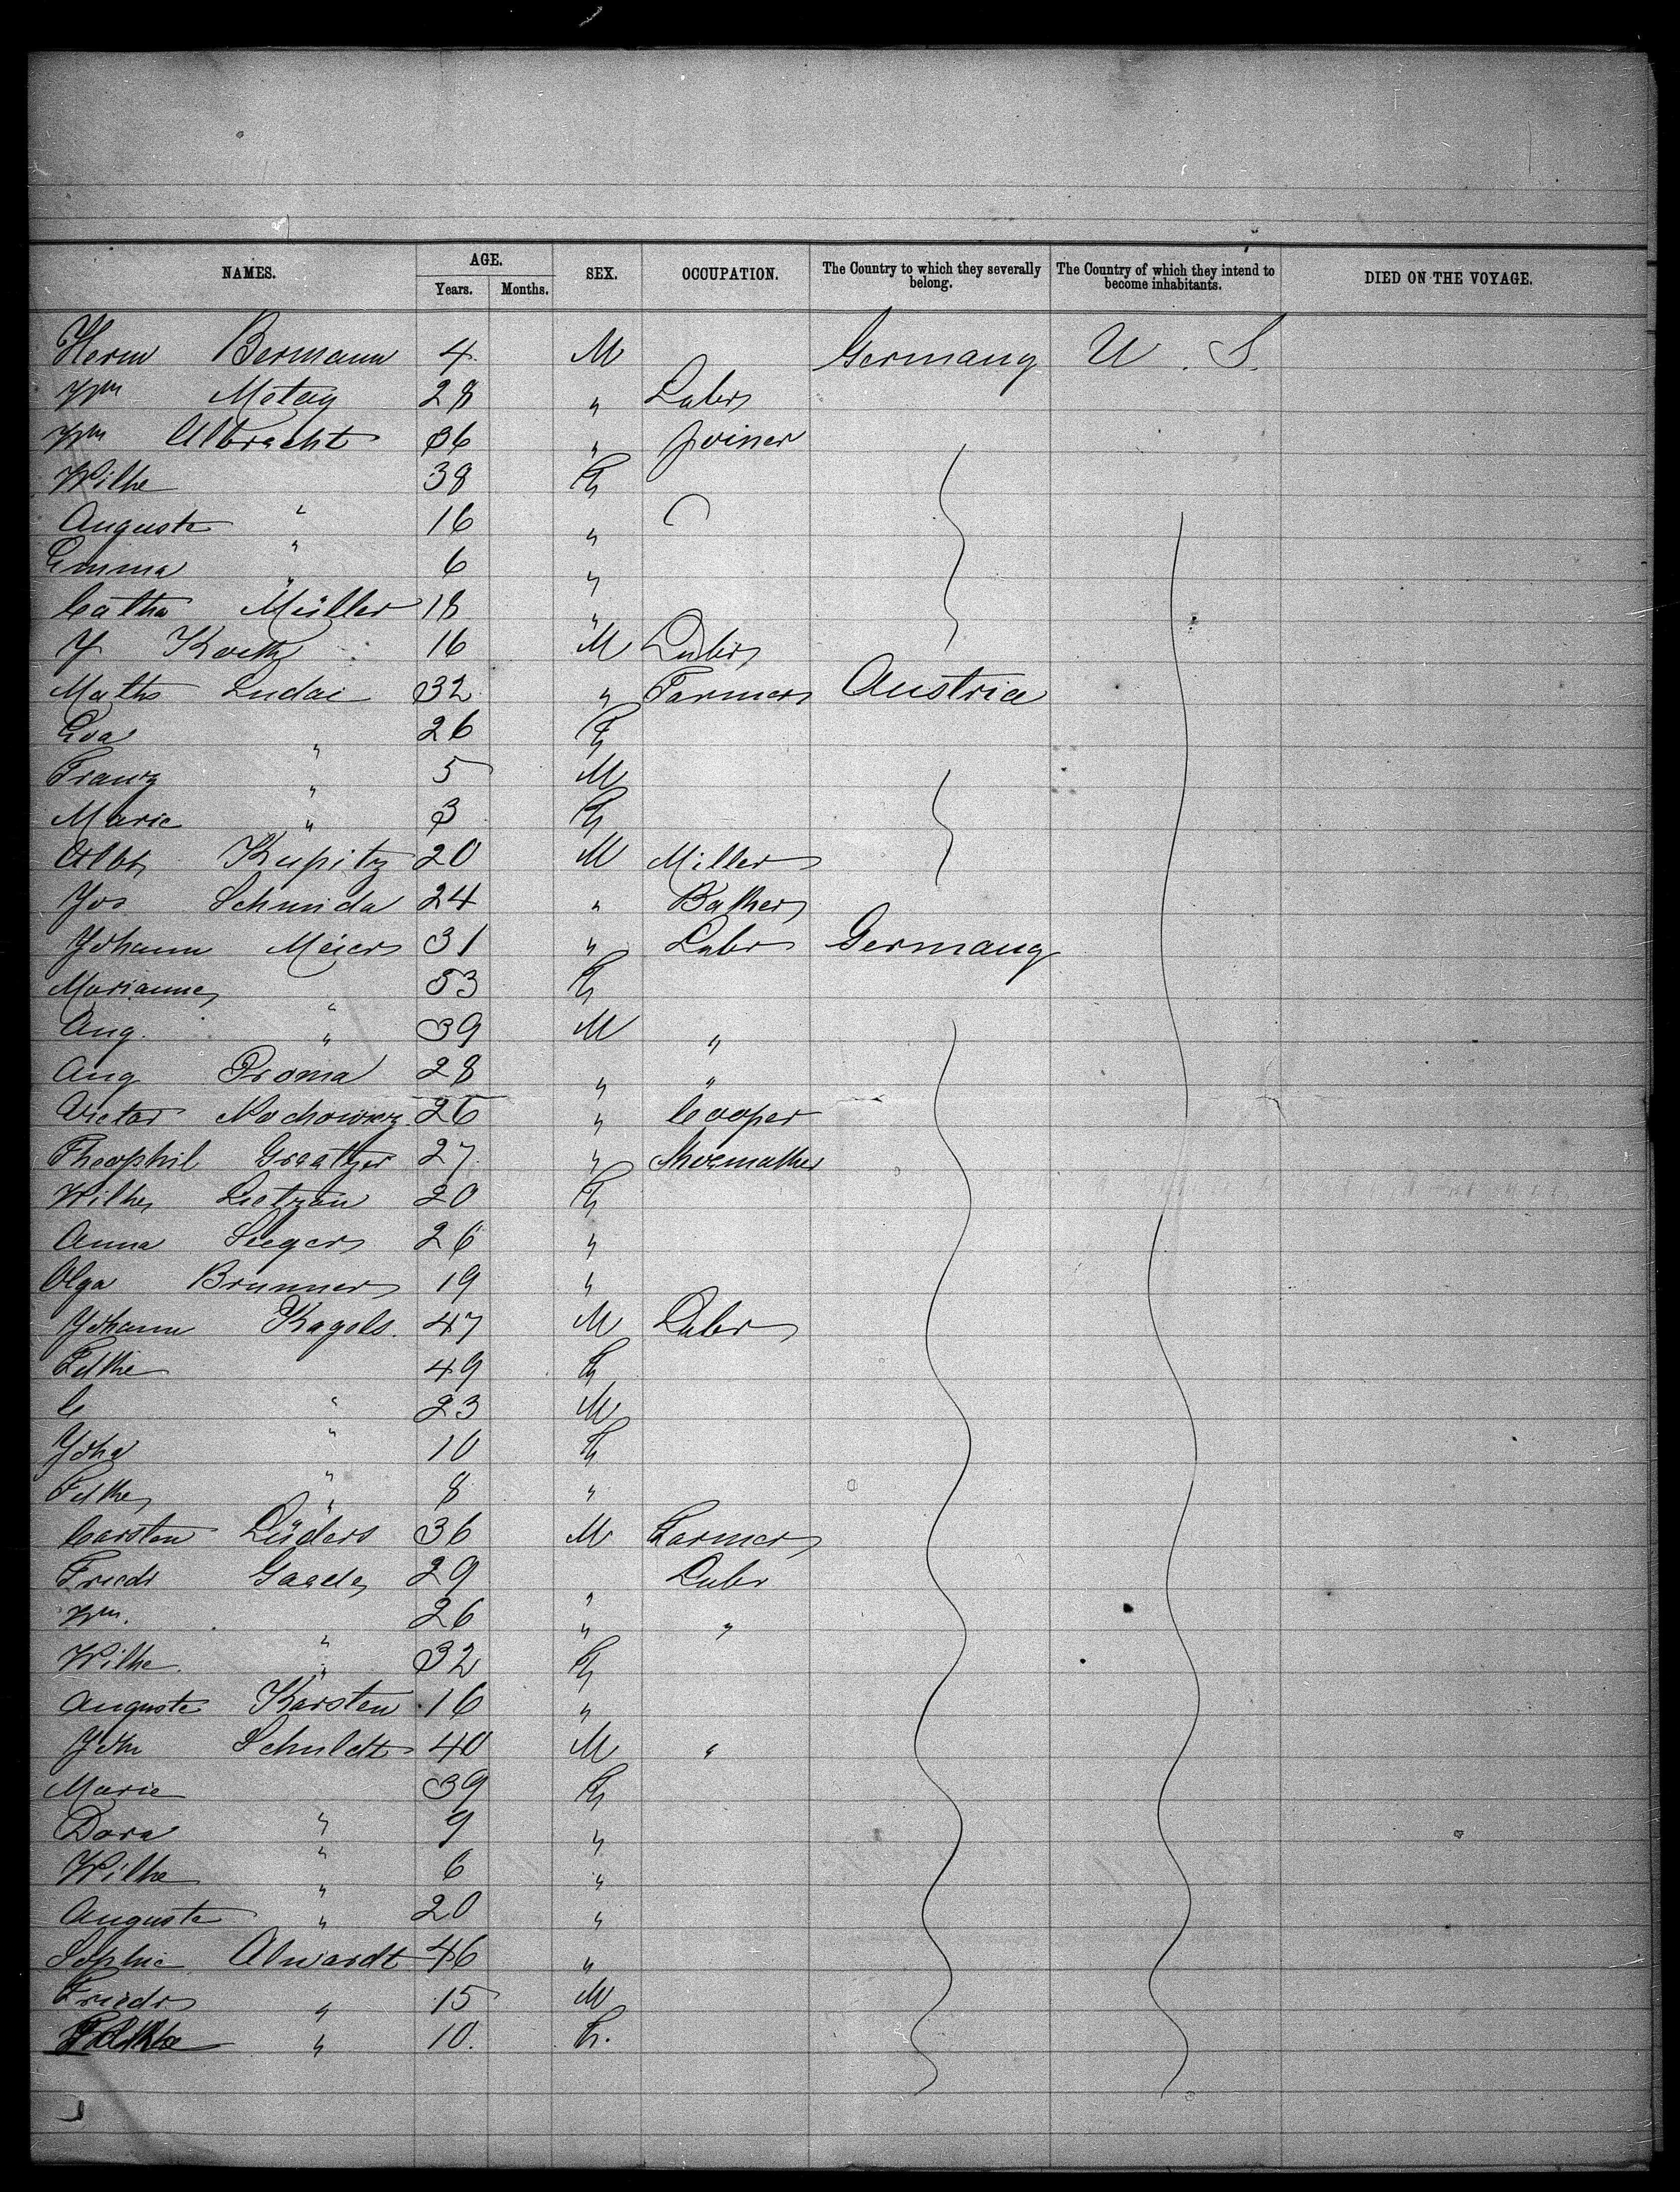 NAMES. AGE. SEX. OCCUPATION. The Country to which they severally belong. The Country of which they intend to become inhabitants. DIED ON THE VOYAGE.
Years. Months.
Herm Bermann 4 M Germany U. S.
Wm 28 " Labr
Wm Albracht 36 " Joiner
Wilhe 38 F
Auguste " 16 "
Emma " 6 "
Catha Müller 18 "
16 M Labr
Maths Ludai 32 " Farmer Austria
Eva " 26 F
Franz " 5 M
Marie " 3 F
Albt Kupitz 20 M Miller
Jos Schmida 24 " Baker
Johann Meier 31 " Labr Germany
Marianne " 53 F
Aug. " 39 M "
Aug Proma 28 " "
Victor 26 " Cooper
Theophil Graatzer 27 " Shoemaker
Wilhe Lietzau 20 F
Anna Seeger 26 "
Olga Brunner 19 "
Johann Kagels. 47 M Labr
49 F
C " 23 M
Joha " 10 F
" 8 "
Carsten Lüders 36 M Farmer
Friedr Gaede 29 " Labr
Wm. " 26 " "
Wilhe. " 32 F
Auguste Karsten 16 "
Joh Schuldt 40 M "
Marie 39 F
Dora " 9 "
Wilhe " 6 "
Auguste " 20 "
Sophie Alwardt 46 "
Friedr " 15 M
" 10. F.